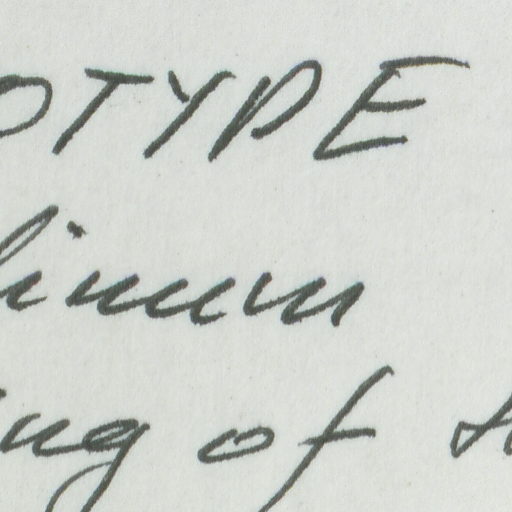 OTYPE
linum
ing of t